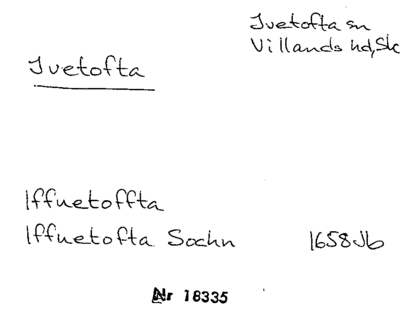 Ivetofta sn
Villands hd, Sk
Ivetofta
Iffuetoffta
Iffuetofta Sochn 1658 Jb
Nr 18335